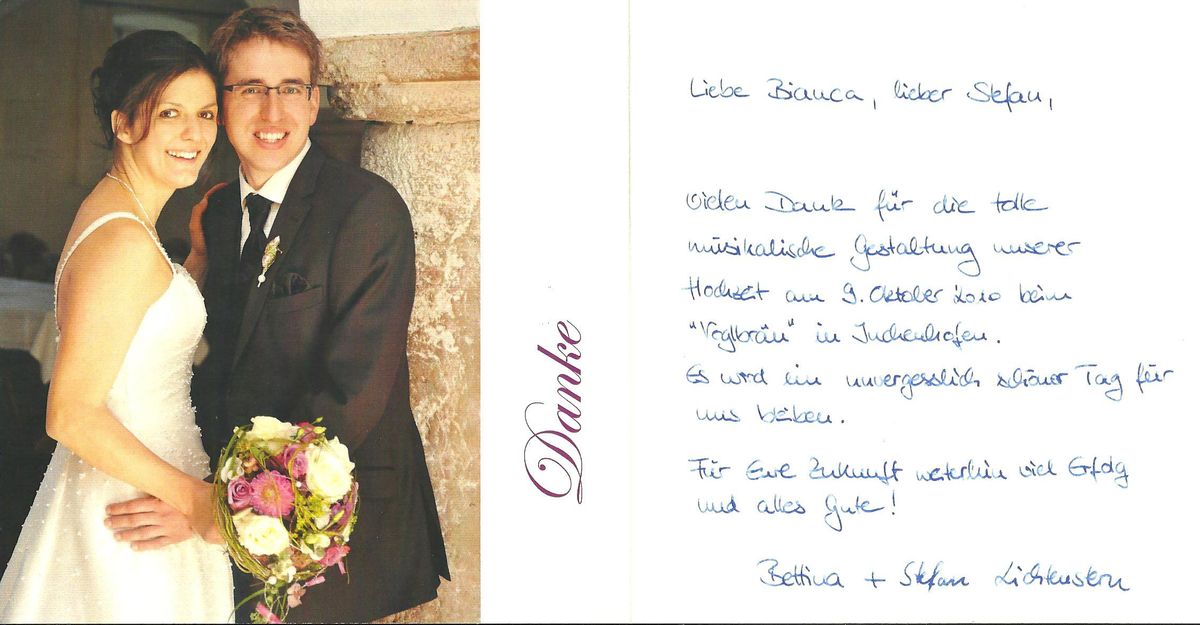 Danke
Liebe Bianca, lieber Stefan,
vielen Dank für die tolle
musikalische Gestaltung unserer
Hochzeit am 9. Oktober 2010 beim
"Voglbräu" in Inchenhofen.
Es wird ein unvergesslich schöner Tag für
uns bleiben.
Für Eure Zukunft weiterhin viel Erfolg
und alles Gute!
Bettina + Stefan Lichtenstern